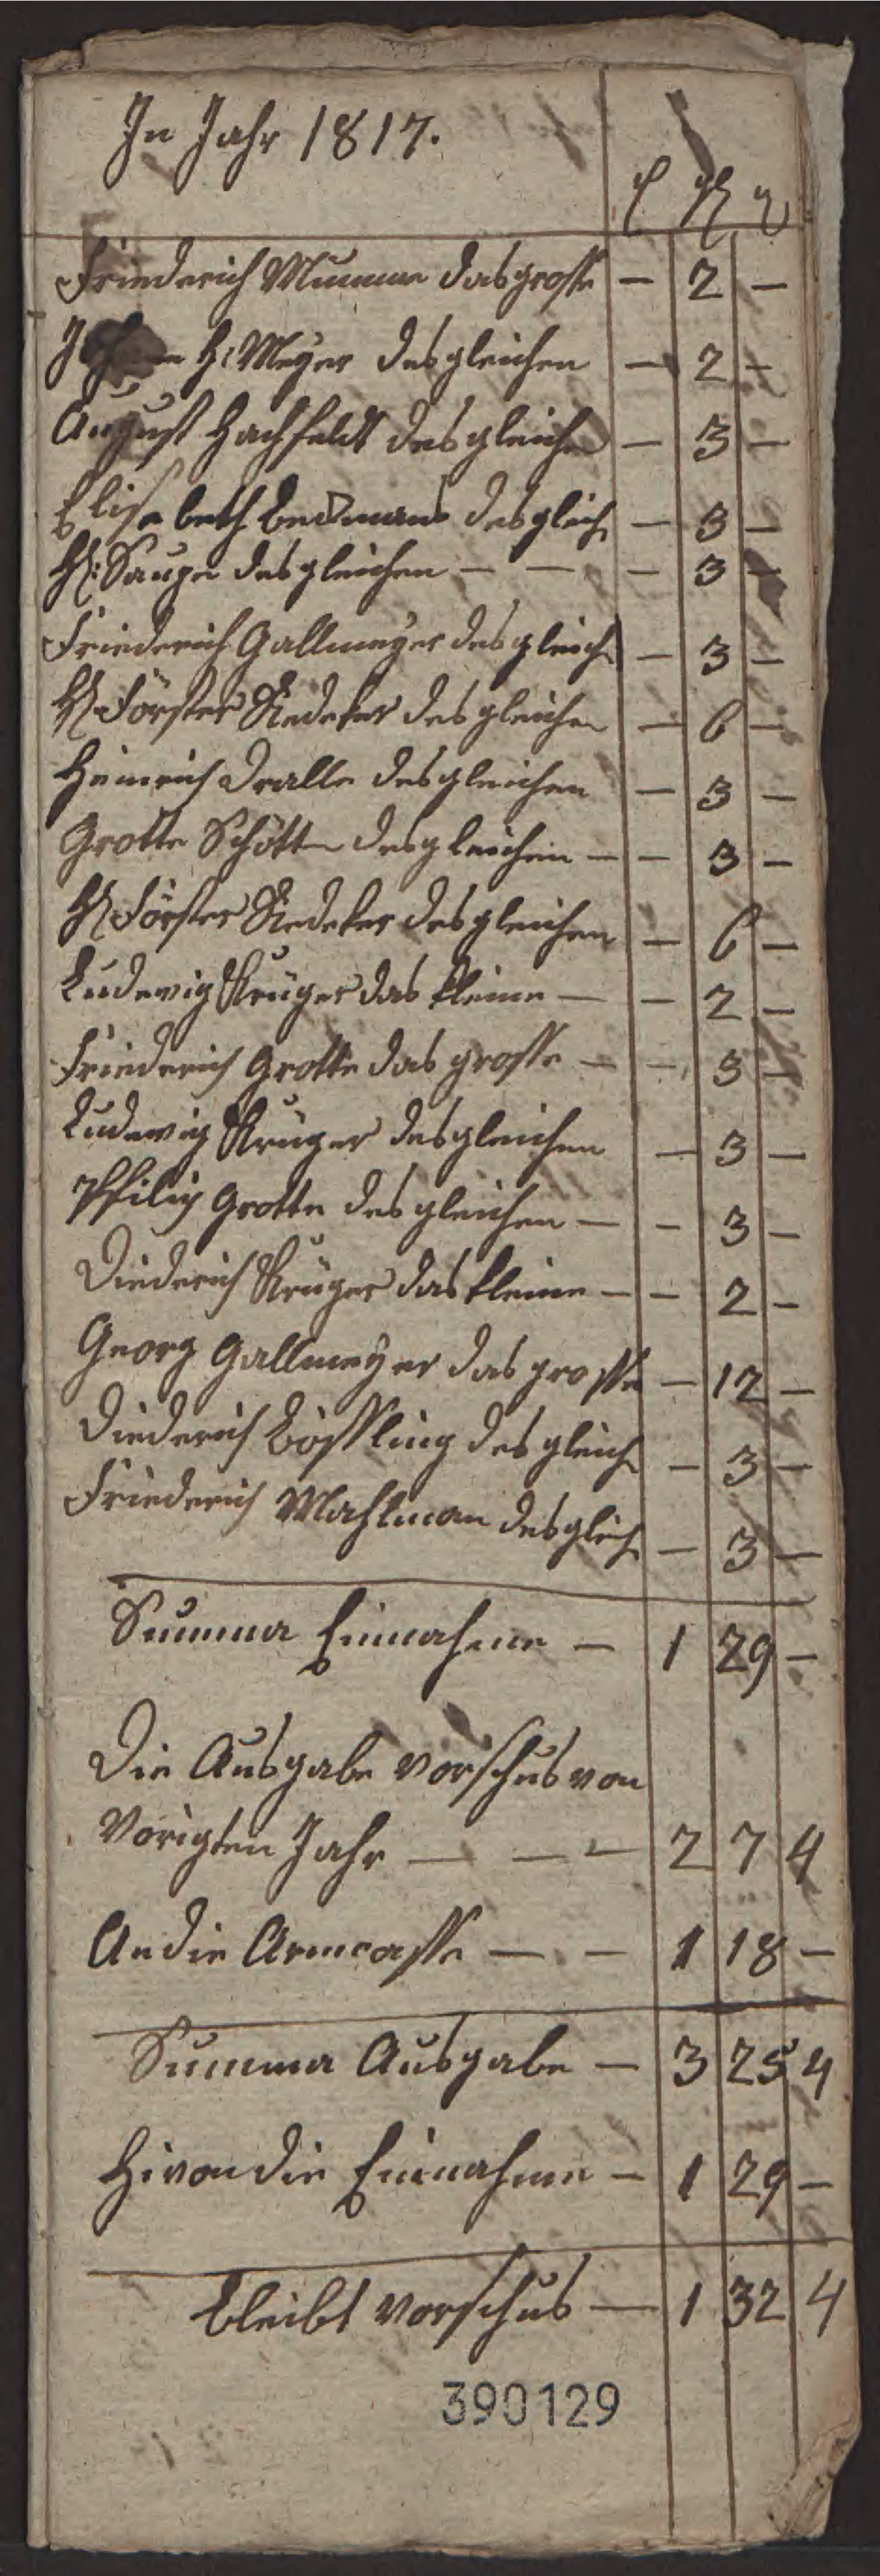 In Jahr 1817.
Friederich Mumme das grosse — 2 —
H: Meyer desgleichen — 2 —
August Hachfeldt desgleichen — 3 —
Elisabeth Beckmans desgleich — 3 —
H: Saupe desgleichen — — — 3 —
Friederich Gallmeyer desgleich — 3 —
H Förster Siedeker desgleichen — 6 —
Heinrich Dralle desgleichen — 3 —
Grotte Schött desgleichen — — 3 —
H Förster Siedeker desgleichen — 6 —
Ludewig Krüger das kleine — — 2 —
Friederich Grotte das grosse — — 3 —
Ludewig Krüger desgleichen — 3 —
Philip Grotte desgleichen — — 3 —
Diederich Krüger das kleine — — 2 —
Georg Gallmeyer das grosse — 12 —
Diederich Bössling desgleich — 3 —
Friederich Mahlman desgleich — 3 —
Summa Einnahme — 1 29 —
Die Ausgabe vorschus von
Vorigten Jahr — — — 2 7 4
An die Armcasse — — 1 18 —
Summa Ausgabe — 3 25 4
Hivon die Einnahme — 1 29 —
bleibt vorschus — 1 32 4
390129